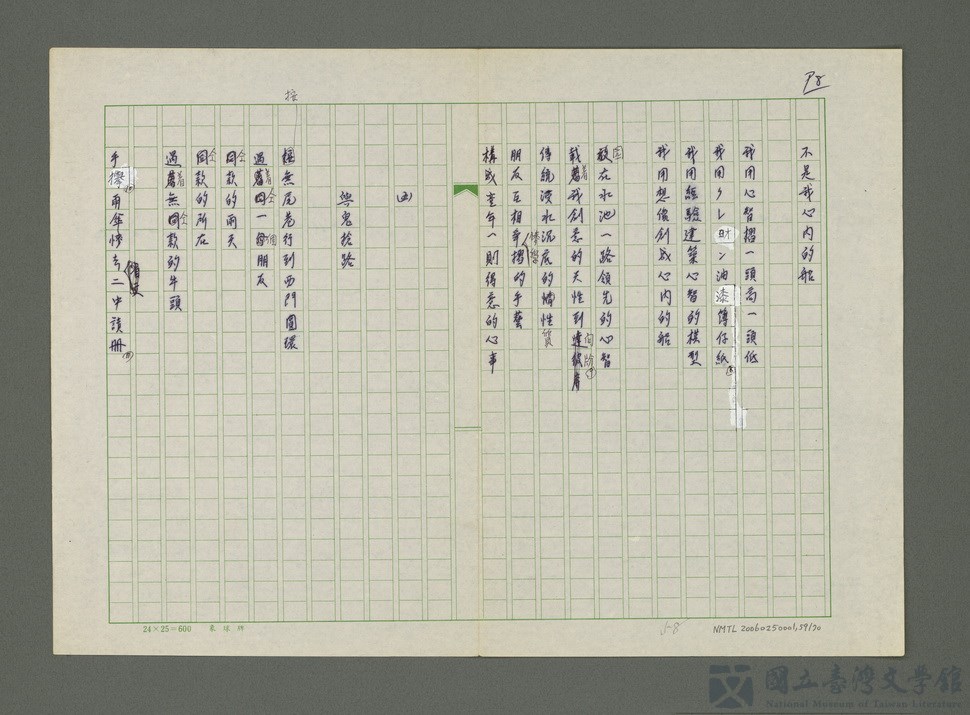 P8
不是我心內的船
我用心智摺一頭高一頭低
我用クレ
ン油漆簿仔紙
我用經驗建築心智的模型
我用想像創成心內的船
放在水池一路領先的心智
載著我創意的天性到
傳統浸水沉底的惰性
朋友互相摺的手藝
構成童年一則得意的心事
(五)
與鬼搶路
按
無尾巷行到西門圓環
遇著仝一個朋友
仝款的雨天
仝款的所在
遇著無仝款的牛頭
手雨傘
去二中讀冊
24×25=600
5-8
NMTL 20060250001,59/70
國立臺灣文學館
National Museum of Taiwan Literature